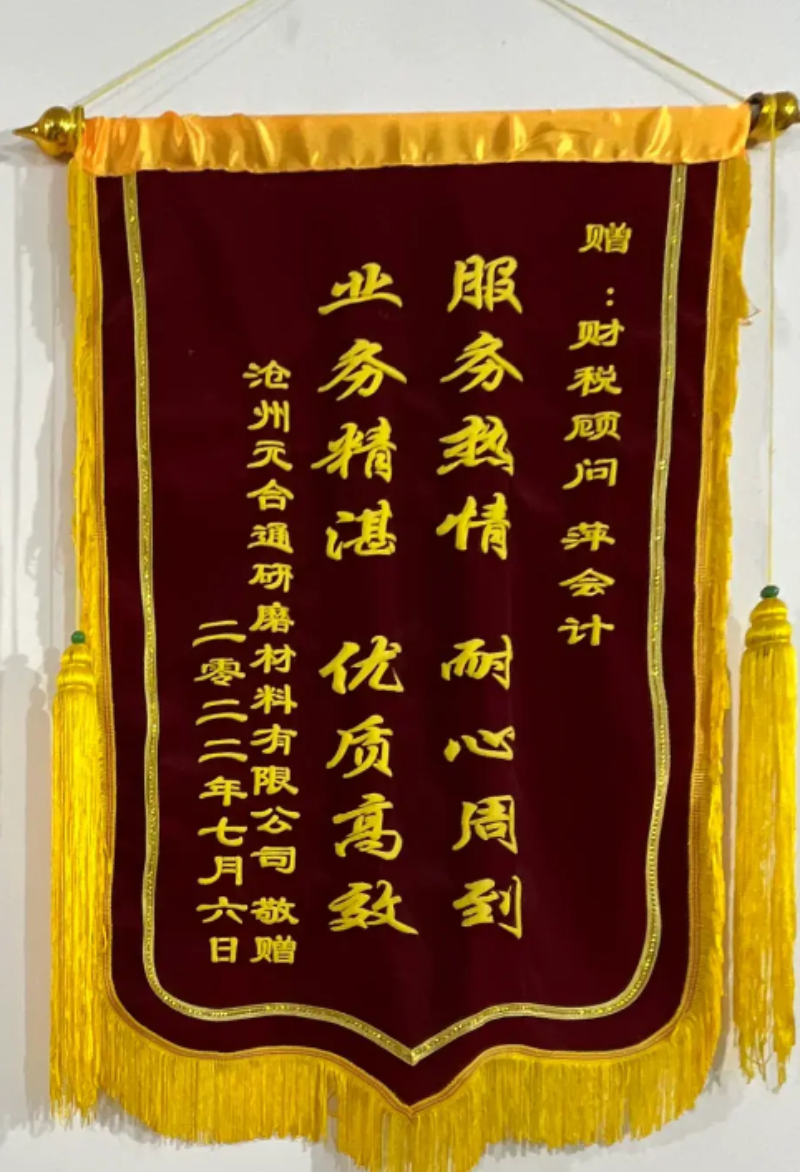 赠：财税顾问 萍会计
服务热情 耐心周到
业务精湛 优质高效
沧州元合通研磨材料有限公司 敬赠
二零二二年七月六日